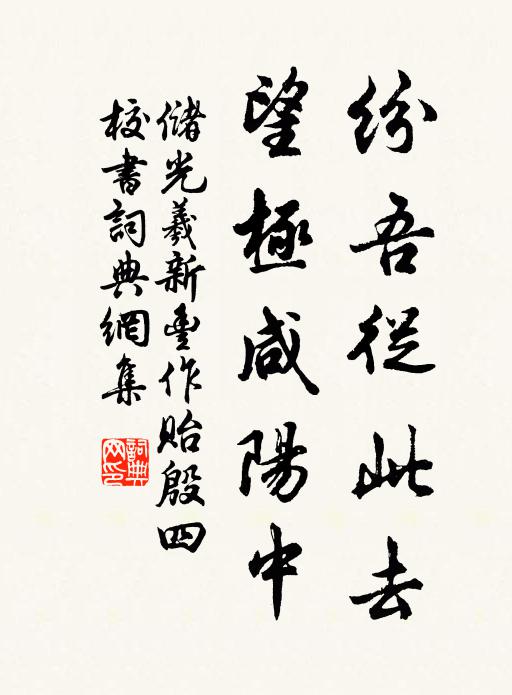 紛吾從此去
望極咸陽中
儲光羲新豐作貽殷四
校書詞典網集
詞典網印